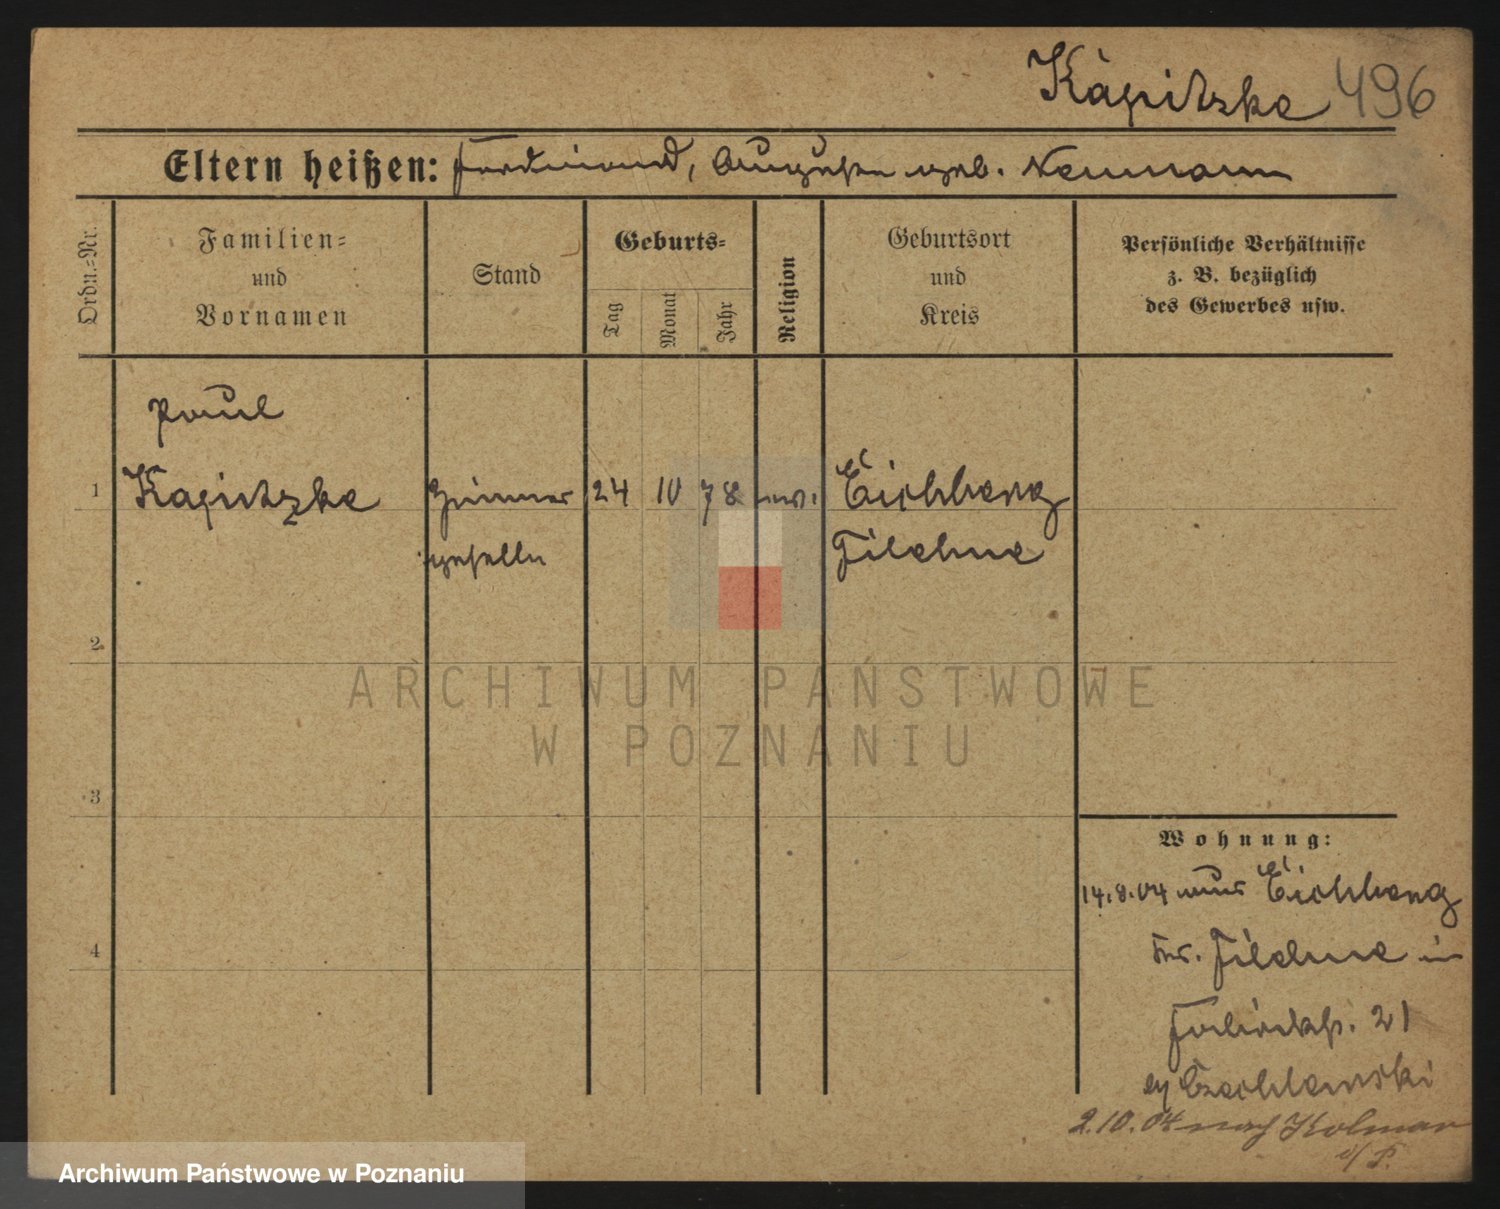 Kapitzke 496
Eltern heißen: Ferdinand, Auguste geb. Neumann
Ordn.-Nr.
Familien-
und
Vornamen
Stand
Geburts-
Tag
Monat
Jahr
Religion
Geburtsort
und
Kreis
Persönliche Verhältnisse
z. B. bezüglich
des Gewerbes usw.
Paul
1 Kapitzke Zimmer 24 10 78 ev. Eichberg
geselle Filehne
2
3
4
Wohnung:
14.8.04 aus Eichberg
Kr. Filehne in
Fabrikstr. 21
by
2.10.04 nach Kolmar
i/P.
ARCHIWUM PAŃSTWOWE
W POZNANIU
Archiwum Państwowe w Poznaniu